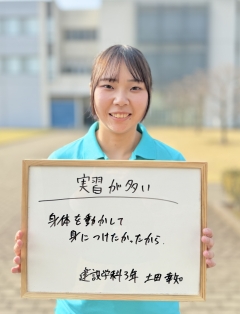 実習が多い
身体を動かして
身につけたかったから.
建設学科3年 土田